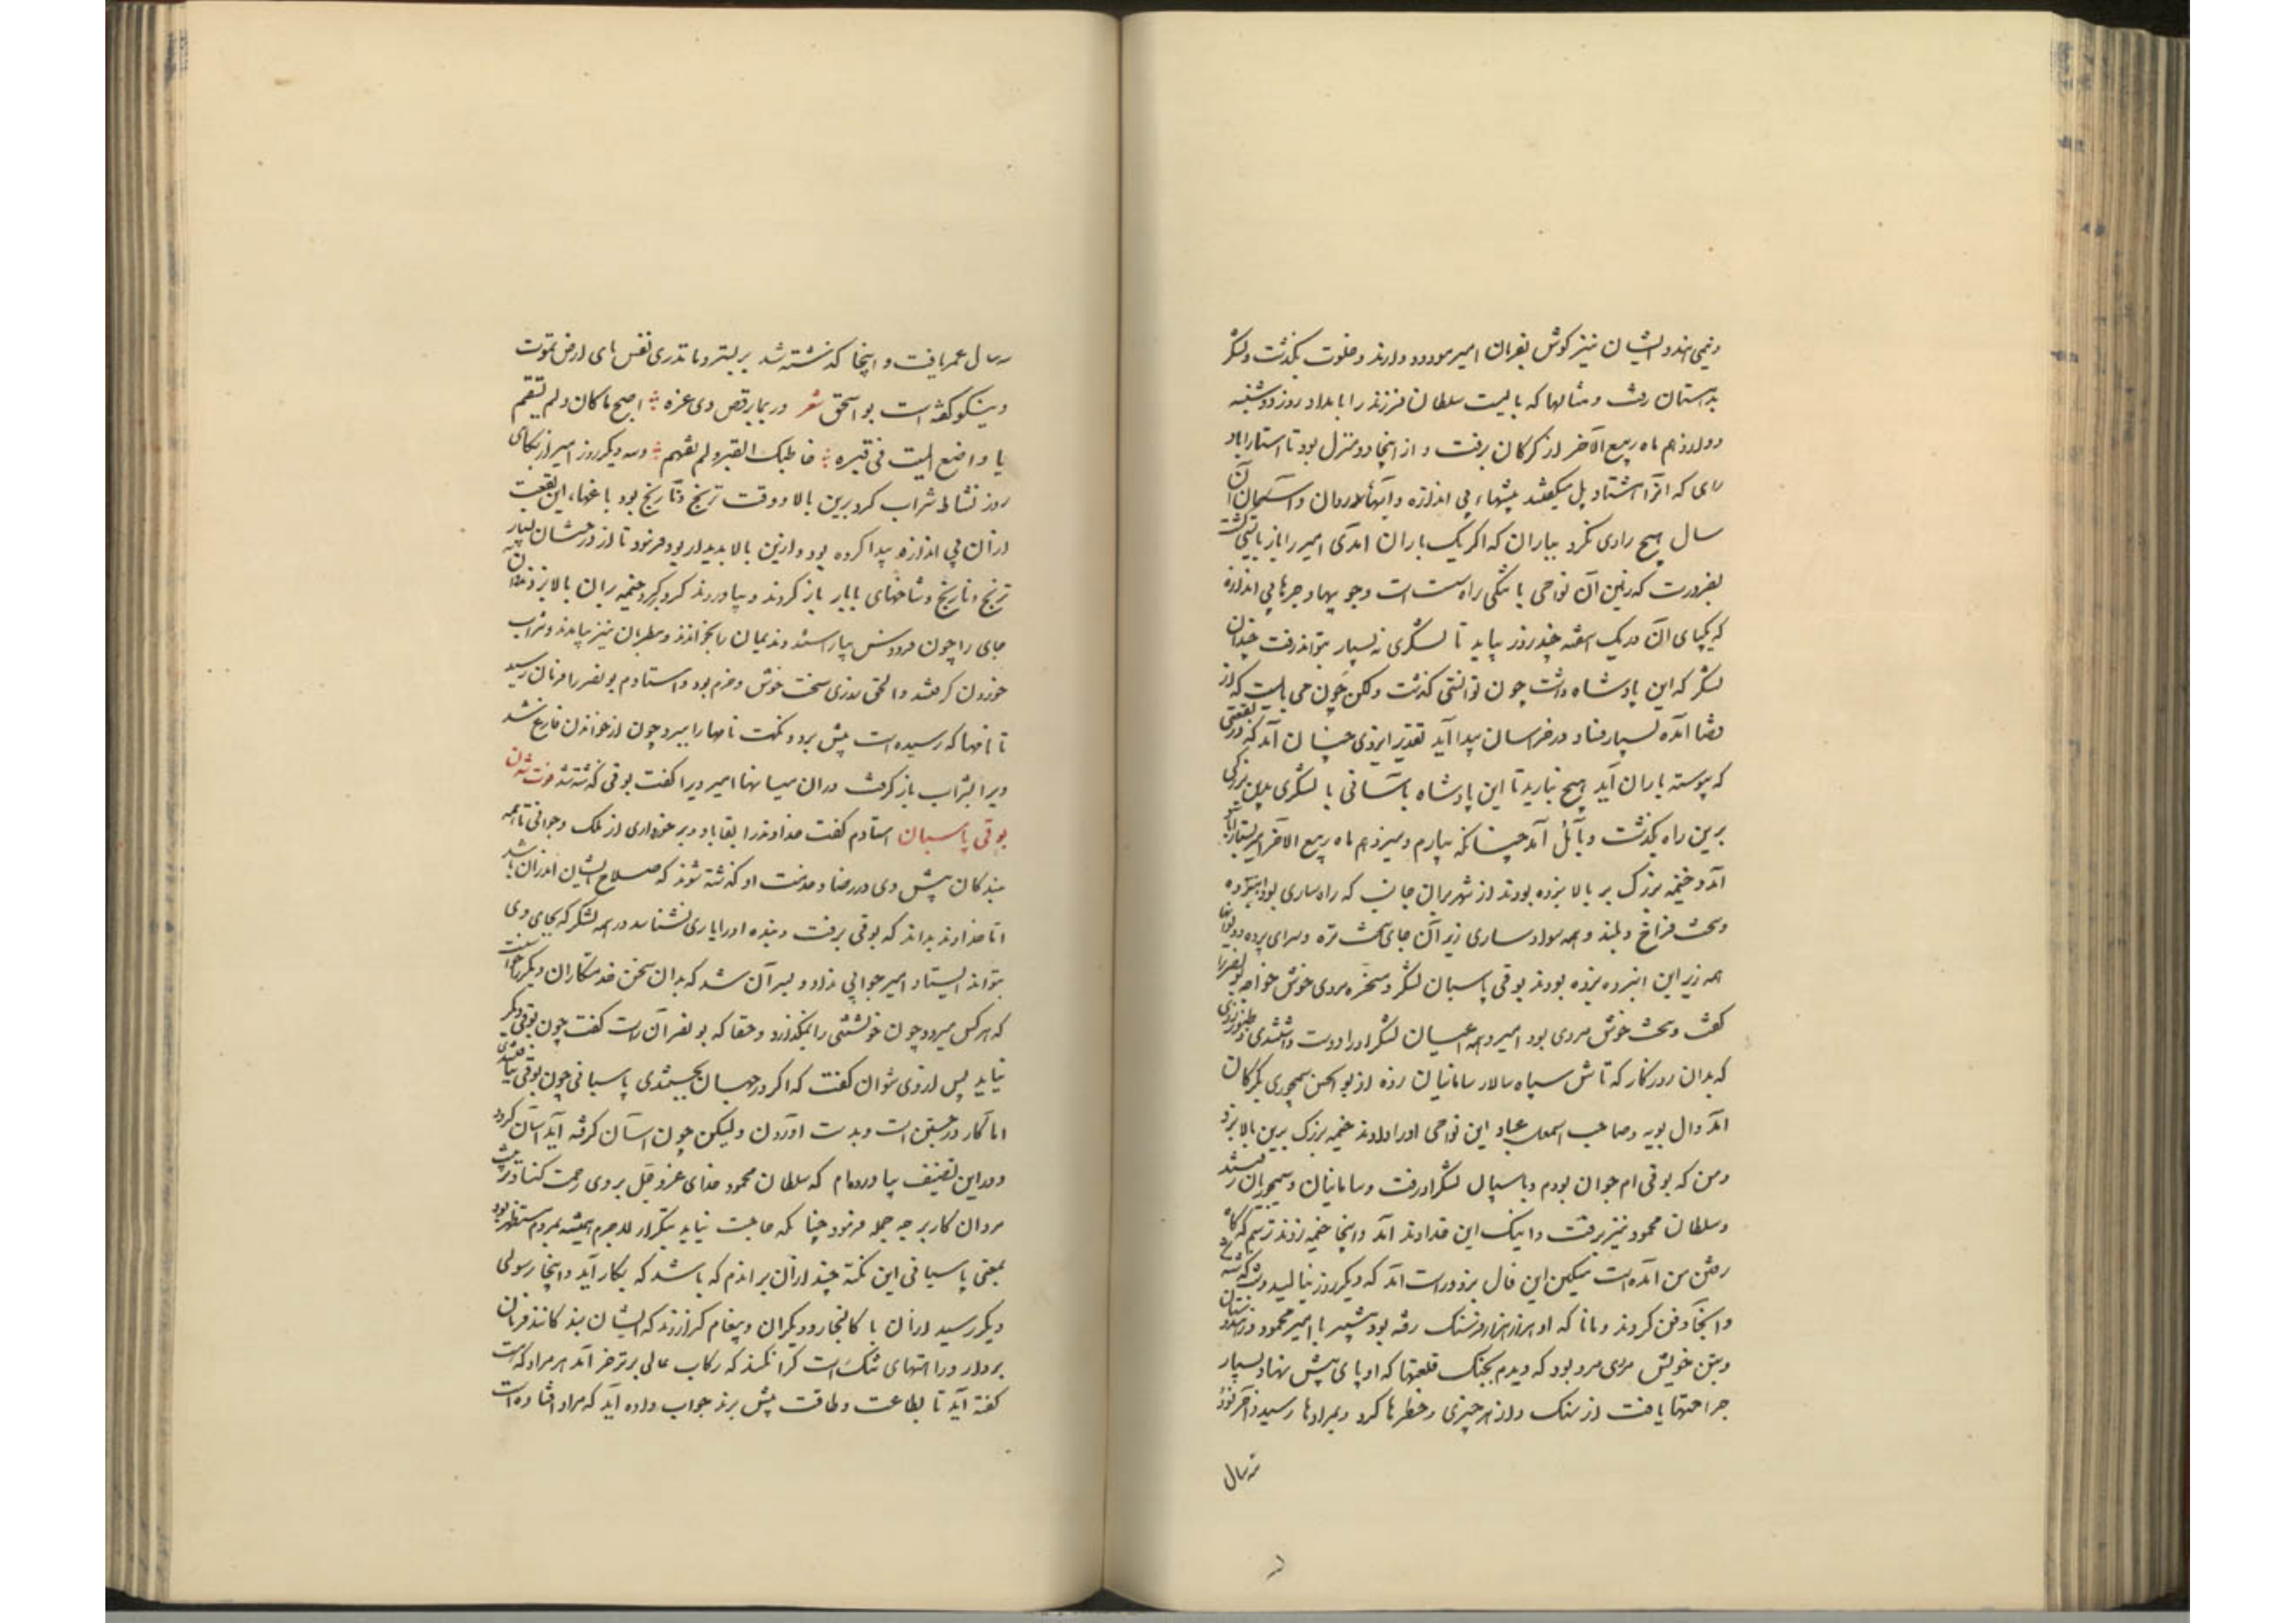 و نیمی هندو ایشان نیز گوش بفرمان امیر مودود دارند و خلوت بگذشت و لشکر
بدهستان رفت و مثالها که بایست سلطان فرزند را بداد و روز دوشنبه
دوازدهم ماه ربیع الآخر از کرکان برفت و از اینجا دو منزل بود تا استاراباد
رای که آنرا هشتاد پل میگفتند بیشهاء بی اندازه و آبهاء روان و آسمان آن
سال هیچ رادی نکرد بباران که اگر یک باران آمدی امیر را باز بایستی گشت
بضرورت که زمین آن نواحی با تنگی راه سست است و جویها و جرها بی اندازه
که یکبای آن در یک هفته چند روز بباید تا لشکری نه بسیار بتواند رفت چندان
لشکر که این پادشاه داشت چون توانستی گذشت ولکن چون می بایست که از
قضا آمده بسیار فساد در خراسان پیدا آید تقدیر ایزدی چنان آمد که در بقعتی
که پیوسته باران آید هیچ نبارید تا این پادشاه باسانی با لشکری بدین بزرگی
برین راه بگذشت و بآمل آمد چنانکه بیارم و سیزدهم ماه ربیع الآخر امیر بستاراباد
آمد و خیمه بزرگ بر بالا بزده بودند از شهر بران جانب که راه ساری بود انبرده
و سخت فراخ و بلند و همه سواد ساری زیر آن جای سخت نزه و سرای پرده و دیوانها
همه زیر این انبرده بزده بودند بوقی پاسبان لشکر و مسخره مردی خوش خواجه بونصر را
گفت و سخت خوش مردی بود امیر و همه اعیان لشکر او را دوست داشتندی و طنبور زدی
که بدان روزگار که تاش سپاه سالار سامانیان زده از بوالحسن سیمجوری بکرکان
آمد و آل بویه و صاحب اسمعیل عباد این نواحی او را دادند خیمه بزرگ برین بالا بزد
و من که بوقی ام جوان بودم و پاسبان لشکر او رفت و سامانیان و سیمجوریان رفتند
و سلطان محمود نیز برفت و اینک این خداوند آمد و اینجا خیمه زدند ترسم که گاه
رفتن من آمده است مسکین این فال بزد و راست آمد که دیگر روز بنالید و شب گذشته شد
و آنجا دفن کردند و مانا که او هزار هزار فرسنگ رفته بود بیشتر با امیر محمود در هندوستان
و بتن خویش مردی مرد بود که دیدم بجنگ قلعتها که او پای پیش نهاد و بسیار
جراحتها یافت از سنگ و از هر چیزی و خطرها کرد و بمرادها رسید و آخر نود
سه سال
سه سال عمر یافت و اینجا گذشته شد بر بستر و ما تدری نفس بای ارض تموت
و نیکو گفته است بو اسحق شعر و ربما یرقص ذی عزه اصح ما کان و لم یسقم
یا واضع المیت فی قبره خاطبک القبر و لم تفهم و سه دیگر روز امیر از پگاهی
روز نشاط شراب کرد برین بالا و وقت ترنج و نارنج بود و باغهاء این بقعت
از آن بی اندازه پیدا کرده بود و ازین بالا پدیدار بود فرمود تا از درختان بسیار
ترنج و نارنج و شاخهای با بار باز کردند و بیاوردند و گرد بر گرد خیمه بران بالا بزدند و آن
جای را چون فردوس بیاراستند و ندیمان را بخواندند و مطربان نیز بیامدند و شراب
خوردن گرفتند و الحق روزی سخت خوش و خرم بود و استادم بونصر را فرمان رسید
تا نامها که رسیده است پیش برد و نکت نامها را ببرد چون از خواندن فارغ شد
ویرا بشراب باز گرفت دران میانها امیر ویرا گفت بوقی گذشته شد فوت شدن
بوقی پاسبان استادم گفت خداوند را بقا باد و برخورداری از ملک و جوانی تا همه
بندگان پیش وی در رضا و خدمت او گذشته شوند که صلاح ایشان اندران باشد
اما خداوند بداند که بوقی برفت و بنده او را یاری نشناسد در همه لشکر که بجای وی
بتواند ایستاد امیر جوابی نداد و بسر آن شد که بدان سخن خدمتکاران دیگر را خواست
که هر کس میرود چون خویشتنی را نمیگذارد و حقا که بونصر آن راست گفت چون بوقی دیگر
نیاید پس از وی توان گفت که اگر در جهان بجستندی پاسبانی چون بوقی نیافتندی
اما کار در جستن است و بدست آوردن ولیکن چون آسان گرفته آید آسان گردد
و در این تصنیف بیاورده ام که سلطان محمود خدای عز و جل بر وی رحمت کناد در تربیت
مردان کار بر چه جمله فرمود چنانکه حاجت نیاید بتکرار لاجرم همیشه بمردم مستظهر بود
بمعنی پاسبانی این نکته چند از آن براندم که باشد که بکار آید و اینجا رسولی
دیگر رسید از آن باکالنجار و دیگران و پیغام گزاردند که ایشان بندگانند فرمان
بردار و راهها تنگ است کرا نکند که رکاب عالی برتر خرامد هر مراد که هست
گفته آید تا بطاعت و طاقت پیش برند جواب داده آید که مراد افتاده است